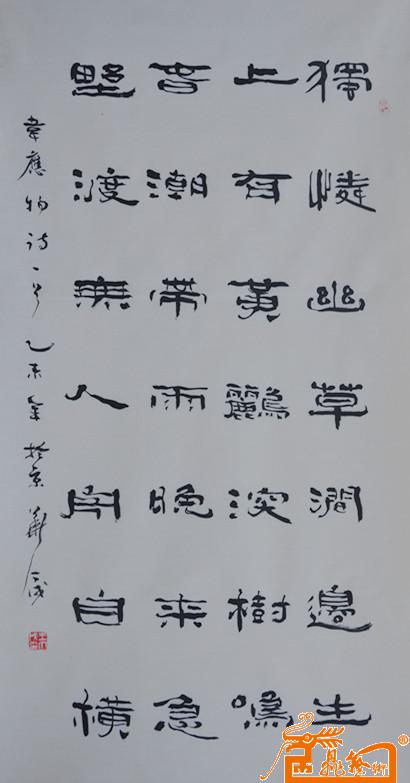 獨憐幽草澗邊生
上有黃鸝深樹鳴
春潮帶雨晚來急
野渡無人舟自橫
韋應物诗一首乙未年於京華